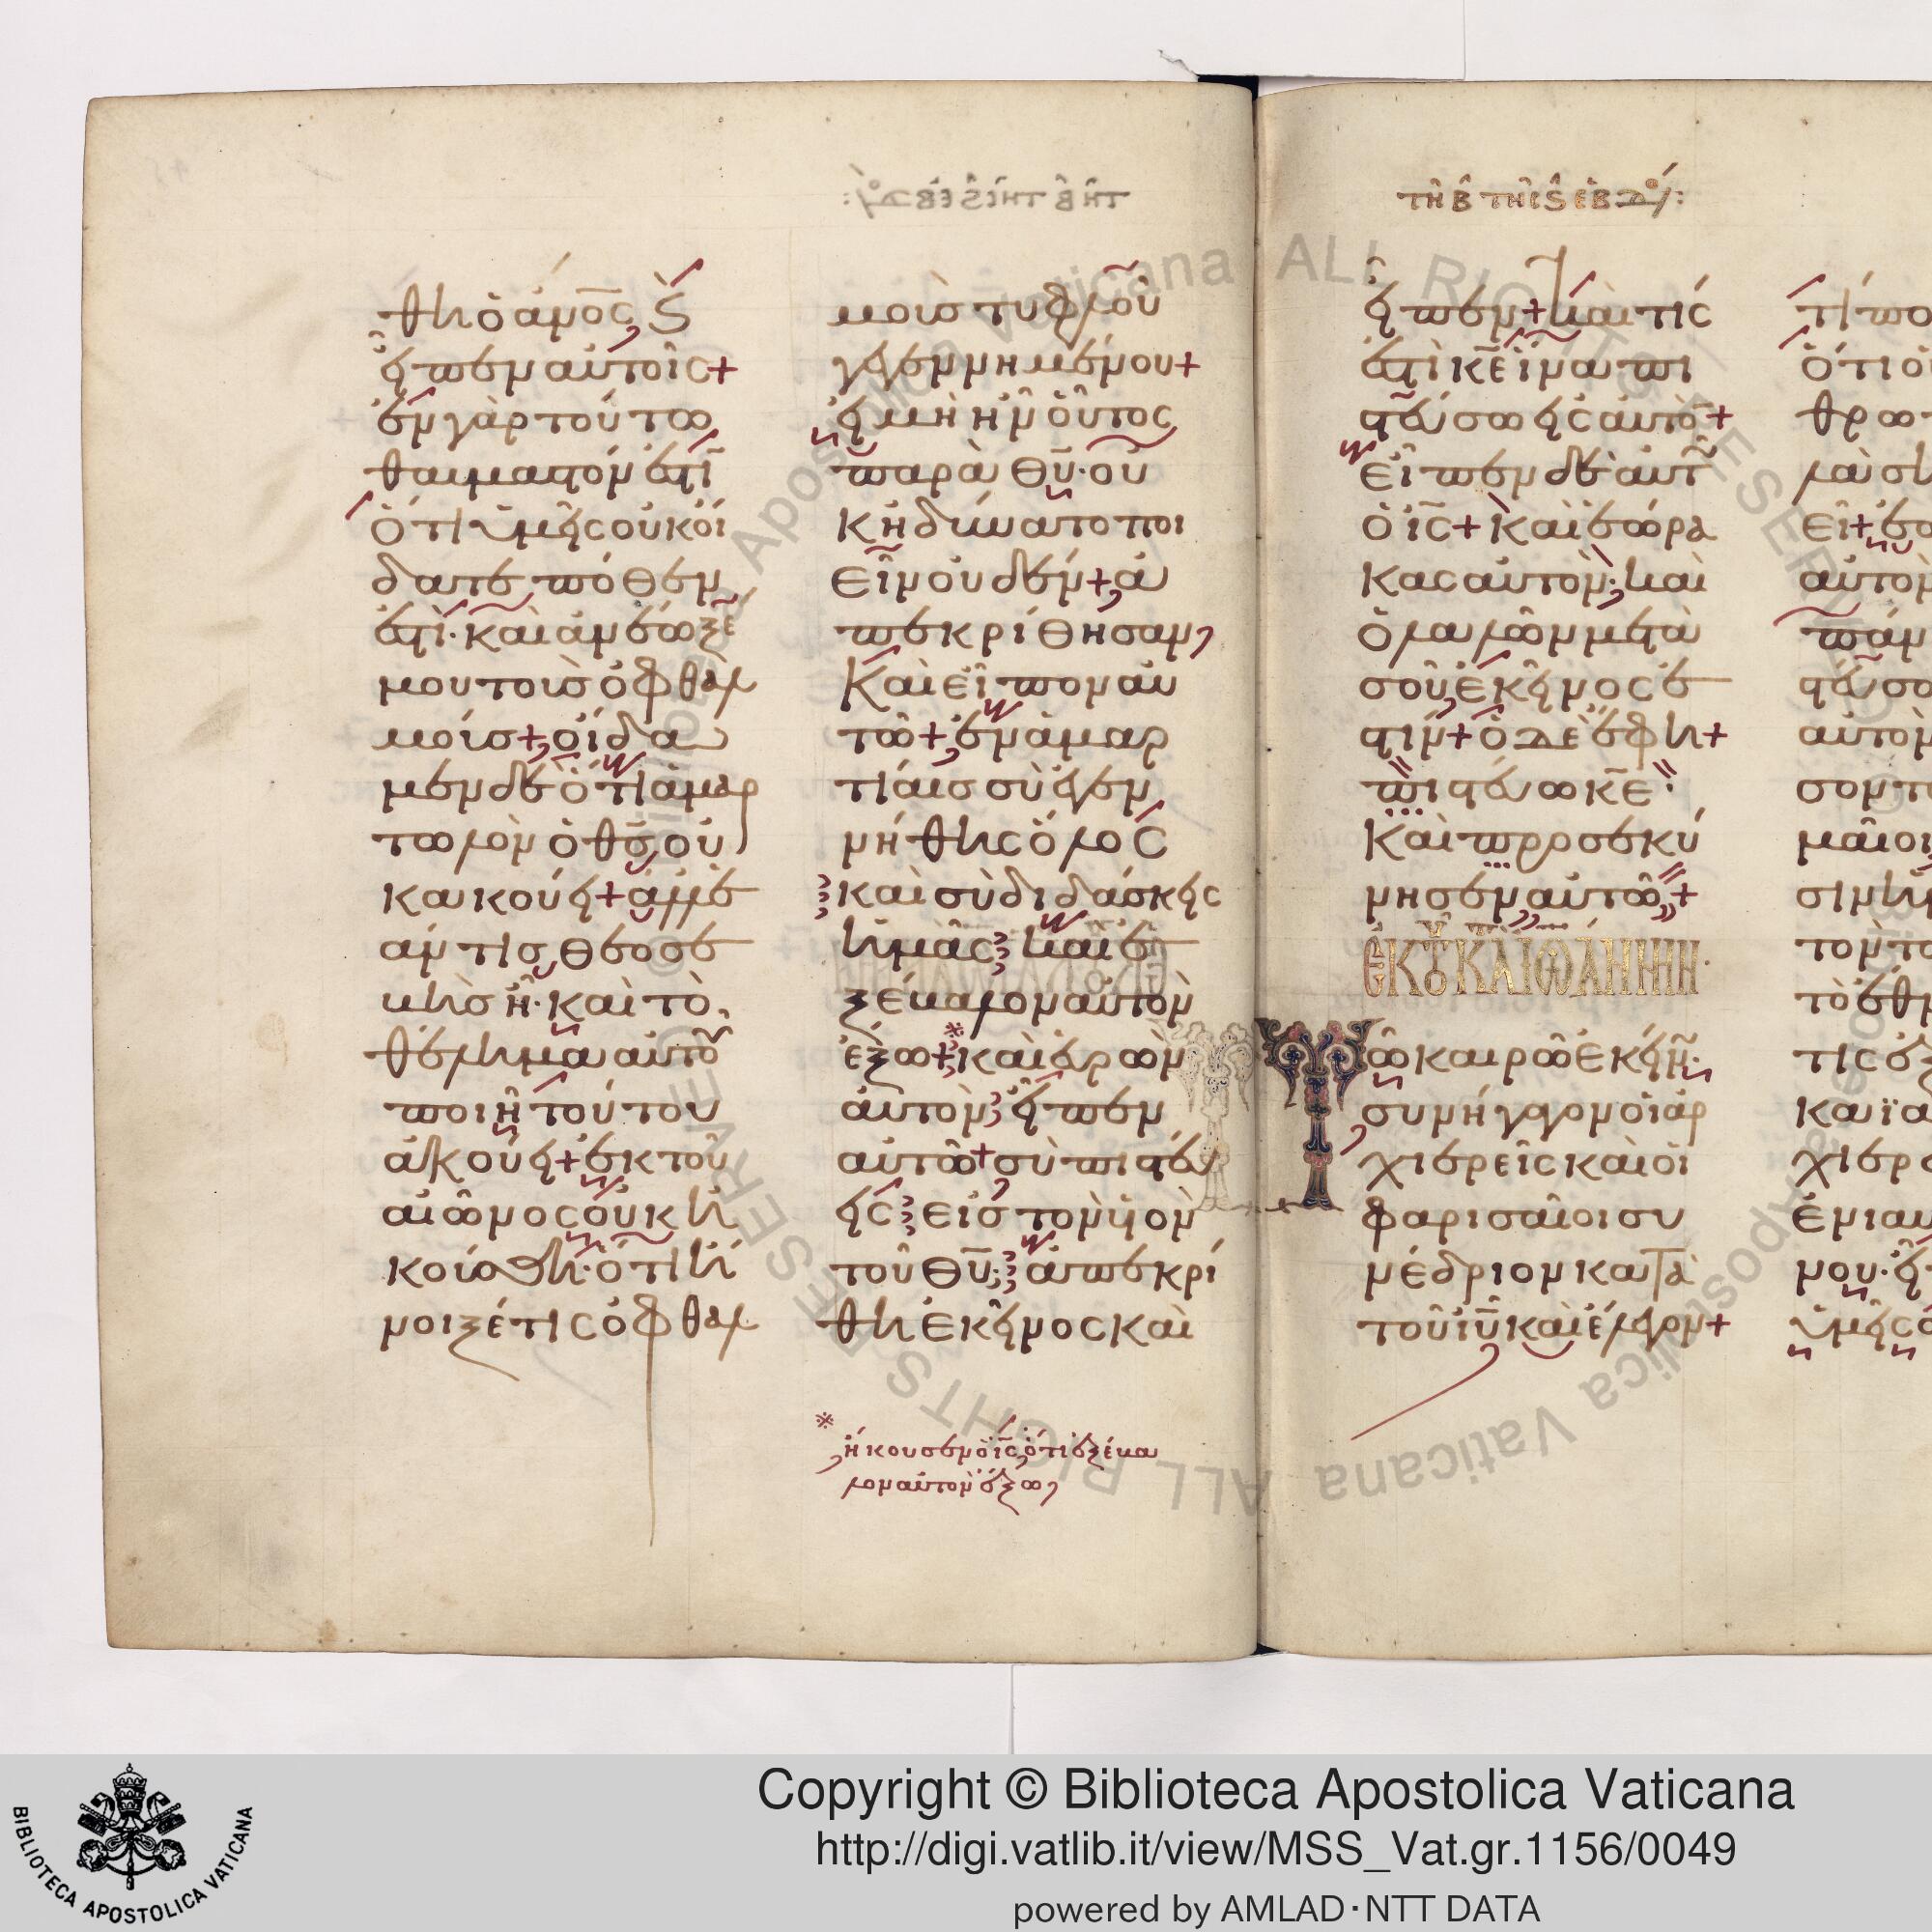 τῆ β τῆς ς ἑβδο:
θη ὁ ἄν̅ο̅ς̅ κ̀
εἶπεν αὐτοῖς+
ἐν γὰρ τούτω
θαυμαστόν ἐστι
ὅτι ὑμεῖς οὐκ οἴ
δατε πόθεν
ἐστὶ· καὶ ἀνέωξέ
μου τοὺς ὀφθαλ
μούς+ οἴδα
μεν δὲ ὅτι ἁμαρ
τωλὸν ὁ θ̅ς̅ οὐ
κ ἀκούει+ ἀλλ' ἐ
άν τις θεοσε
βὴς ἦ· καὶ τὸ
θέλημα αὐτοῦ
ποιῆ τούτου
ἀκούει+ ἐκ τοῦ
αἰῶνος οὐκ ἠ
κούσθη· ὅτι ἤ
νοιξέ τις ὀφθαλ
μοὺς τυφλοῦ
γεγεννημένου+
εἰ μὴ ἦν οὗτος
παρὰ θ̅υ̅· οὐ
κ ἠδύνατο ποι
εῖν οὐδέν+ ἀ
πεκρίθησαν
καὶ εἶπον αὐ
τῶ+ ἐν ἁμαρ
τίαις σὺ ἐγεν
νήθης ὅλος
καὶ σὺ διδάσκεις
ἡμᾶς; καὶ ἐ
ξέβαλον αὐτὸν
ἔξω+ καὶ εὑρὼν
αὐτὸν εἶπεν
αὐτῶ+ σὺ πιστεύ
εις εἰς τὸν υἱὸν
τοῦ θ̅υ̅; ἀπεκρί
θη ἐκεῖνος καὶ
※ ἤκουσεν ὁ ι̅ς̅ ὅτι ἐξέβα
λον αὐτὸν ἔξω
τῆ β τῆς ς ἑβδο:
εἶπεν+ καὶ τίς
ἐστὶ κ̅ε̅ ἵνα πι
στεύσω εἰς αὐτὸ+
εἶπεν δὲ αὐτῶ
ὁ ι̅ς̅+ καὶ ἑώρα
κας αὐτὸν· καὶ
ὁ λαλῶν μετὰ
σοῦ ἐκεῖνος ἐ
στιν+ ὁ δὲ ἔφη+
πιστεύω κ̅ε̅·
καὶ προσεκύ
νησεν αὐτῶ+
ἐκ τοῦ κατὰ ἰωάννην·
Τῶ καιρῶ ἐκείνω·
συνήγαγον οἱ ἀρ
χιερεῖς καὶ οἱ
φαρισαῖοι συ
νέδριον κατὰ
τοῦ ι̅υ̅ καὶ ἔλεγον+
τί πο
ὅτι ὁ
θρω
λὰ ση
εῖ+ ἐ
αὐτὸν
πάν
στεύσο
αὐτὸν
σοντ
μαῖοι
σιν ἡ
τὸν το
τὸ ἔθν
τις ἐξ
καϊα
χιερε
ἐνιαυ
νου· εἶ
ὑμεῖς ο
Copyright © Biblioteca Apostolica Vaticana
http://digi.vatlib.it/view/MSS_Vat.gr.1156/0049
powered by AMLAD·NTT DATA
BIBLIOTECA APOSTOLICA VATICANA